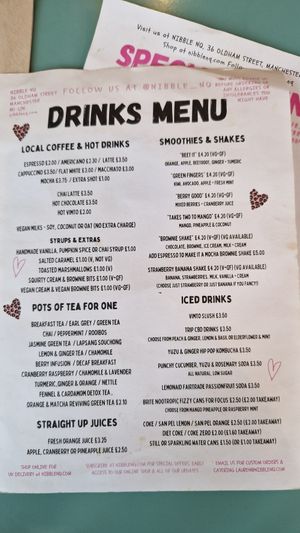 Visit us at NIBBLE NQ, 36 OLDHAM STREET, MANCHESTER
Shop at nibblenq.com
NIBBLE NQ
36 OLDHAM STREET
MANCHESTER
M1 1JN
FOLLOW US AT @NIBBLE_NQ
BEFORE ORDERING OF
ANY ALLERGIES OR
INTOLERANCES YOU
MIGHT HAVE
DRINKS MENU
LOCAL COFFEE & HOT DRINKS
ESPRESSO £2.00 / AMERICANO £2.30 / LATTE £3.50
CAPPUCCINO £3.50/ FLAT WHITE £3.00 / MACCHIATO £3.00
MOCHA £3.75 / EXTRA SHOT £1.00
CHAI LATTE £3.50
HOT CHOCOLATE £3.50
HOT VIMTO £2.00
VEGAN MILKS - SOY, COCONUT OR OAT (NO EXTRA CHARGE)
SYRUPS & EXTRAS
HANDMADE VANILLA, PUMPKIN SPICE OR CHAI SYRUP £1.00
SALTED CARAMEL £1.00 (V, NOT VG)
TOASTED MARSHMALLOWS £1.00 (V)
SQUIRTY CREAM & BROWNIE BITS £1.00 (V+GF)
VEGAN CREAM & VEGAN BROWNIE BITS £1.00 (VG+GF)
POTS OF TEA FOR ONE
BREAKFAST TEA / EARL GREY / GREEN TEA
CHAI / PEPPERMINT / ROOIBOS
JASMINE GREEN TEA / LAPSANG SOUCHONG
LEMON & GINGER TEA / CHAMOMILE
BERRY INFUSION / DECAF BREAKFAST
CRANBERRY RASPBERRY / CHAMOMILE & LAVENDER
TURMERIC, GINGER & ORANGE / NETTLE
FENNEL & CARDAMOM DETOX TEA
ORANGE & MATCHA REVIVING GREEN TEA £2.10
STRAIGHT UP JUICES
FRESH ORANGE JUICE £3.25
APPLE, CRANBERRY OR PINEAPPLE JUICE £2.50
SMOOTHIES & SHAKES
"BEET IT" £4.20 (VG+GF)
ORANGE, APPLE, BEETROOT, GINGER + TUMERIC
"GREEN FINGERS" £4.20 (VG+GF)
KIWI, AVOCADO, APPLE + FRESH MINT
"BERRY GOOD" £4.20 (VG+GF)
MIXED BERRIES + CRANBERRY JUICE
"TAKES TWO TO MANGO" £4.20 (VG+GF)
MANGO, PINEAPPLE & COCONUT
"BROWNIE SHAKE" £4.20 (V+GF) (VG AVAILABLE)
CHOCOLATE, BROWNIE, ICE CREAM, MILK + CREAM
ADD ESPRESSO TO MAKE IT A MOCHA BROWNIE SHAKE £5.00
STRAWBERRY BANANA SHAKE £4.20 (V+GF) (VG AVAILABLE)
BANANA, STRAWBERRIES, MILK, VANILLA + CREAM
(CHOOSE JUST STRAWBERRY OR JUST BANANA IF YOU FANCY!)
ICED DRINKS
VIMTO SLUSH £3.50
TRIP CBD DRINKS £3.50
CHOOSE FROM PEACH & GINGER, LEMON & BASIL OR ELDERFLOWER & MINT
YUZU & GINGER HIP POP KOMBUCHA £3.50
PUNCHY CUCUMBER, YUZU & ROSEMARY SODA £3.50
ALL NATURAL, LOW SUGAR
LEMONAID FAIRTRADE PASSIONFRUIT SODA £3.50
BRITE NOOTROPIC FIZZY CANS FOR FOCUS £2.50 (£2.00 TAKEAWAY)
CHOOSE FROM MANGO PINEAPPLE OR RASPBERRY MINT
COKE / SAN PEL LEMON / SAN PEL ORANGE £2.50 (£1.60 TAKEAWAY)
DIET COKE / COKE ZERO £2.00 (£1.60 TAKEAWAY)
STILL OR SPARKLING WATER CANS £1.50 (OR £1.00 TAKEAWAY)
SHOP ONLINE FOR
UK DELIVERY at NIBBLENQ.COM
SUBSCRIBE AT NIBBLENQ.COM FOR SPECIAL OFFERS, EARLY
ACCESS TO OUR ONLINE SHOP & ALL OF OUR UPDATES
EMAIL US FOR CUSTOM ORDERS &